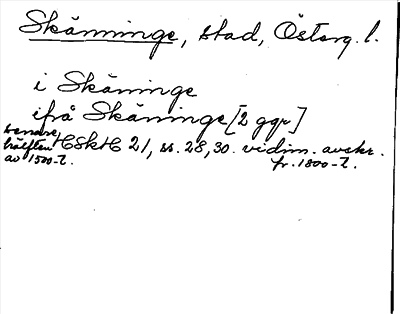 Skänninge, stad, Österg. l.
i Skäninge
ifrå Skäninge [2 ggr]
senare hälften av 1500-t. HSkH 21, ss. 28, 30. vidim. avskr. fr. 1800-t.